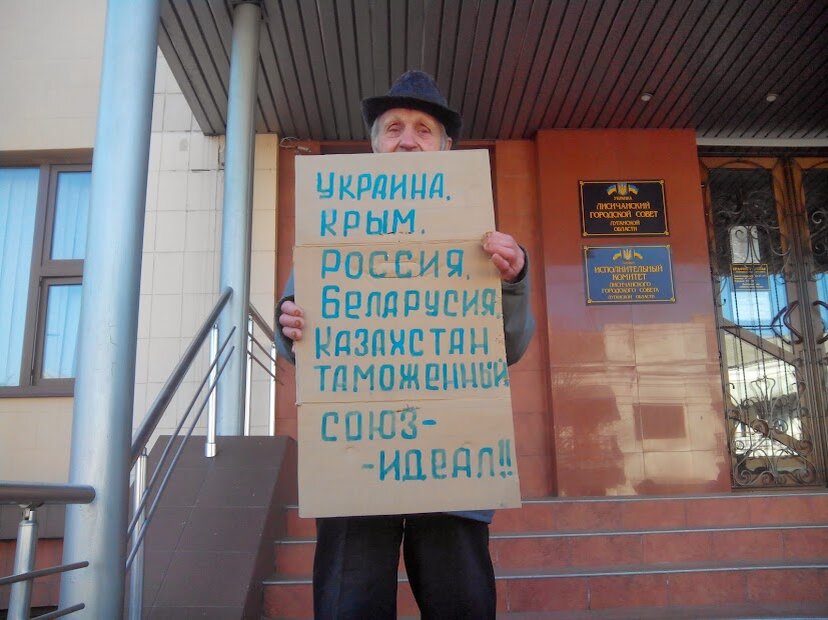 УКРАИНА,
КРЫМ,
РОССИЯ,
БЕЛАРУСИЯ,
КАЗАХСТАН
ТАМОЖЕННЫЙ
СОЮЗ-
-ИДЕАЛ!!
УКРАИНА
ЛИСИЧАНСКИЙ
ГОРОДСКОЙ СОВЕТ
ЛУГАНСКОЙ
ОБЛАСТИ
ИСПОЛНИТЕЛЬНЫЙ
КОМИТЕТ
ЛИСИЧАНСКОГО ГОРОДСКОГО СОВЕТА
ЛУГАНСКОЙ ОБЛАСТИ